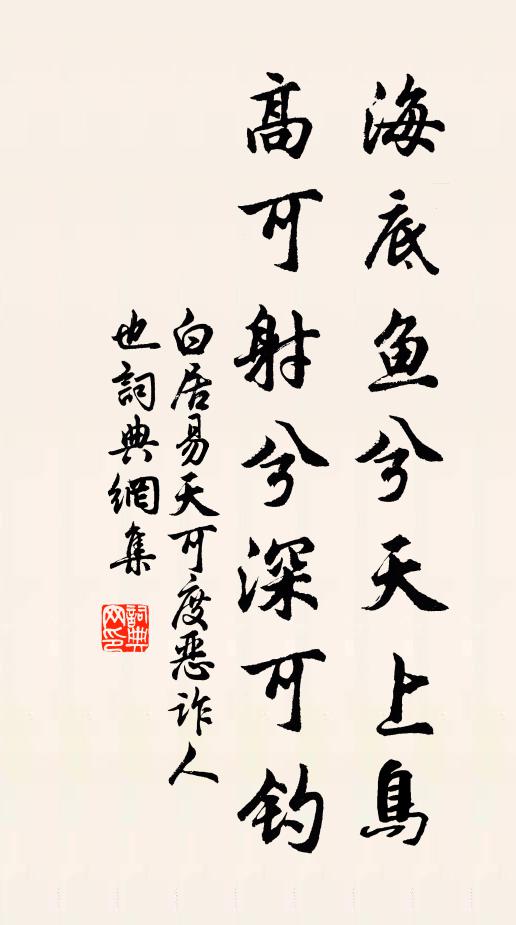 海底魚兮天上鳥
高可射兮深可钓
白居易天可度惡诈人
也詞典網集
詞典
网印